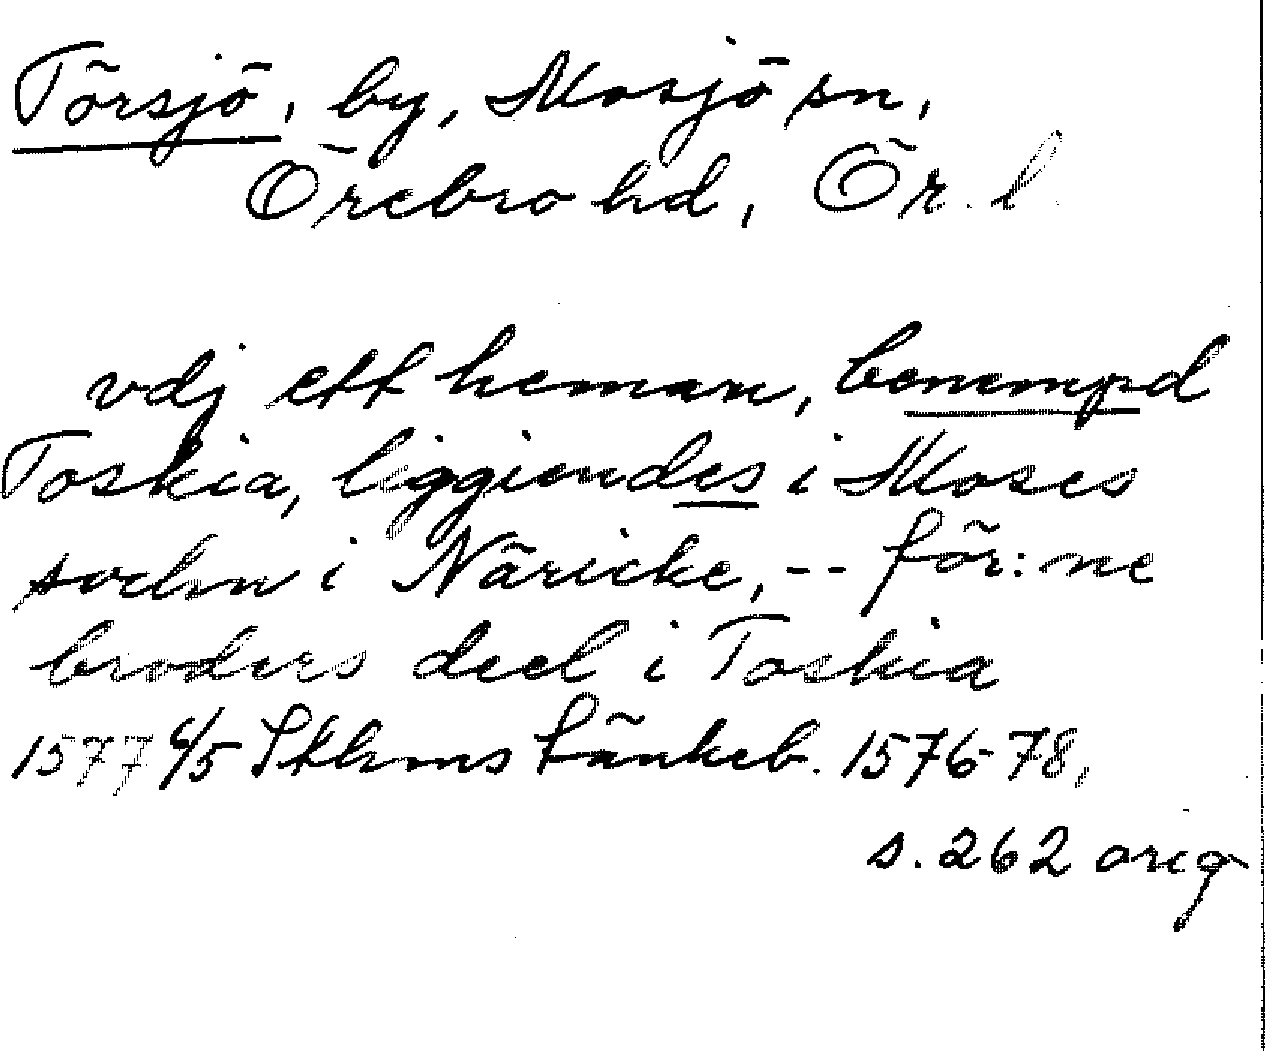 Törsjö, by, Mosjö sn,
Örebro hd, Ör. l.
vdj ett heman, benempd
Toskia, liggiendes i Moses
sochn i Näricke, -- för:ne
broders deel i Toskia
1577 6/5 Sthms tänkeb. 1576-78,
s. 262 orig